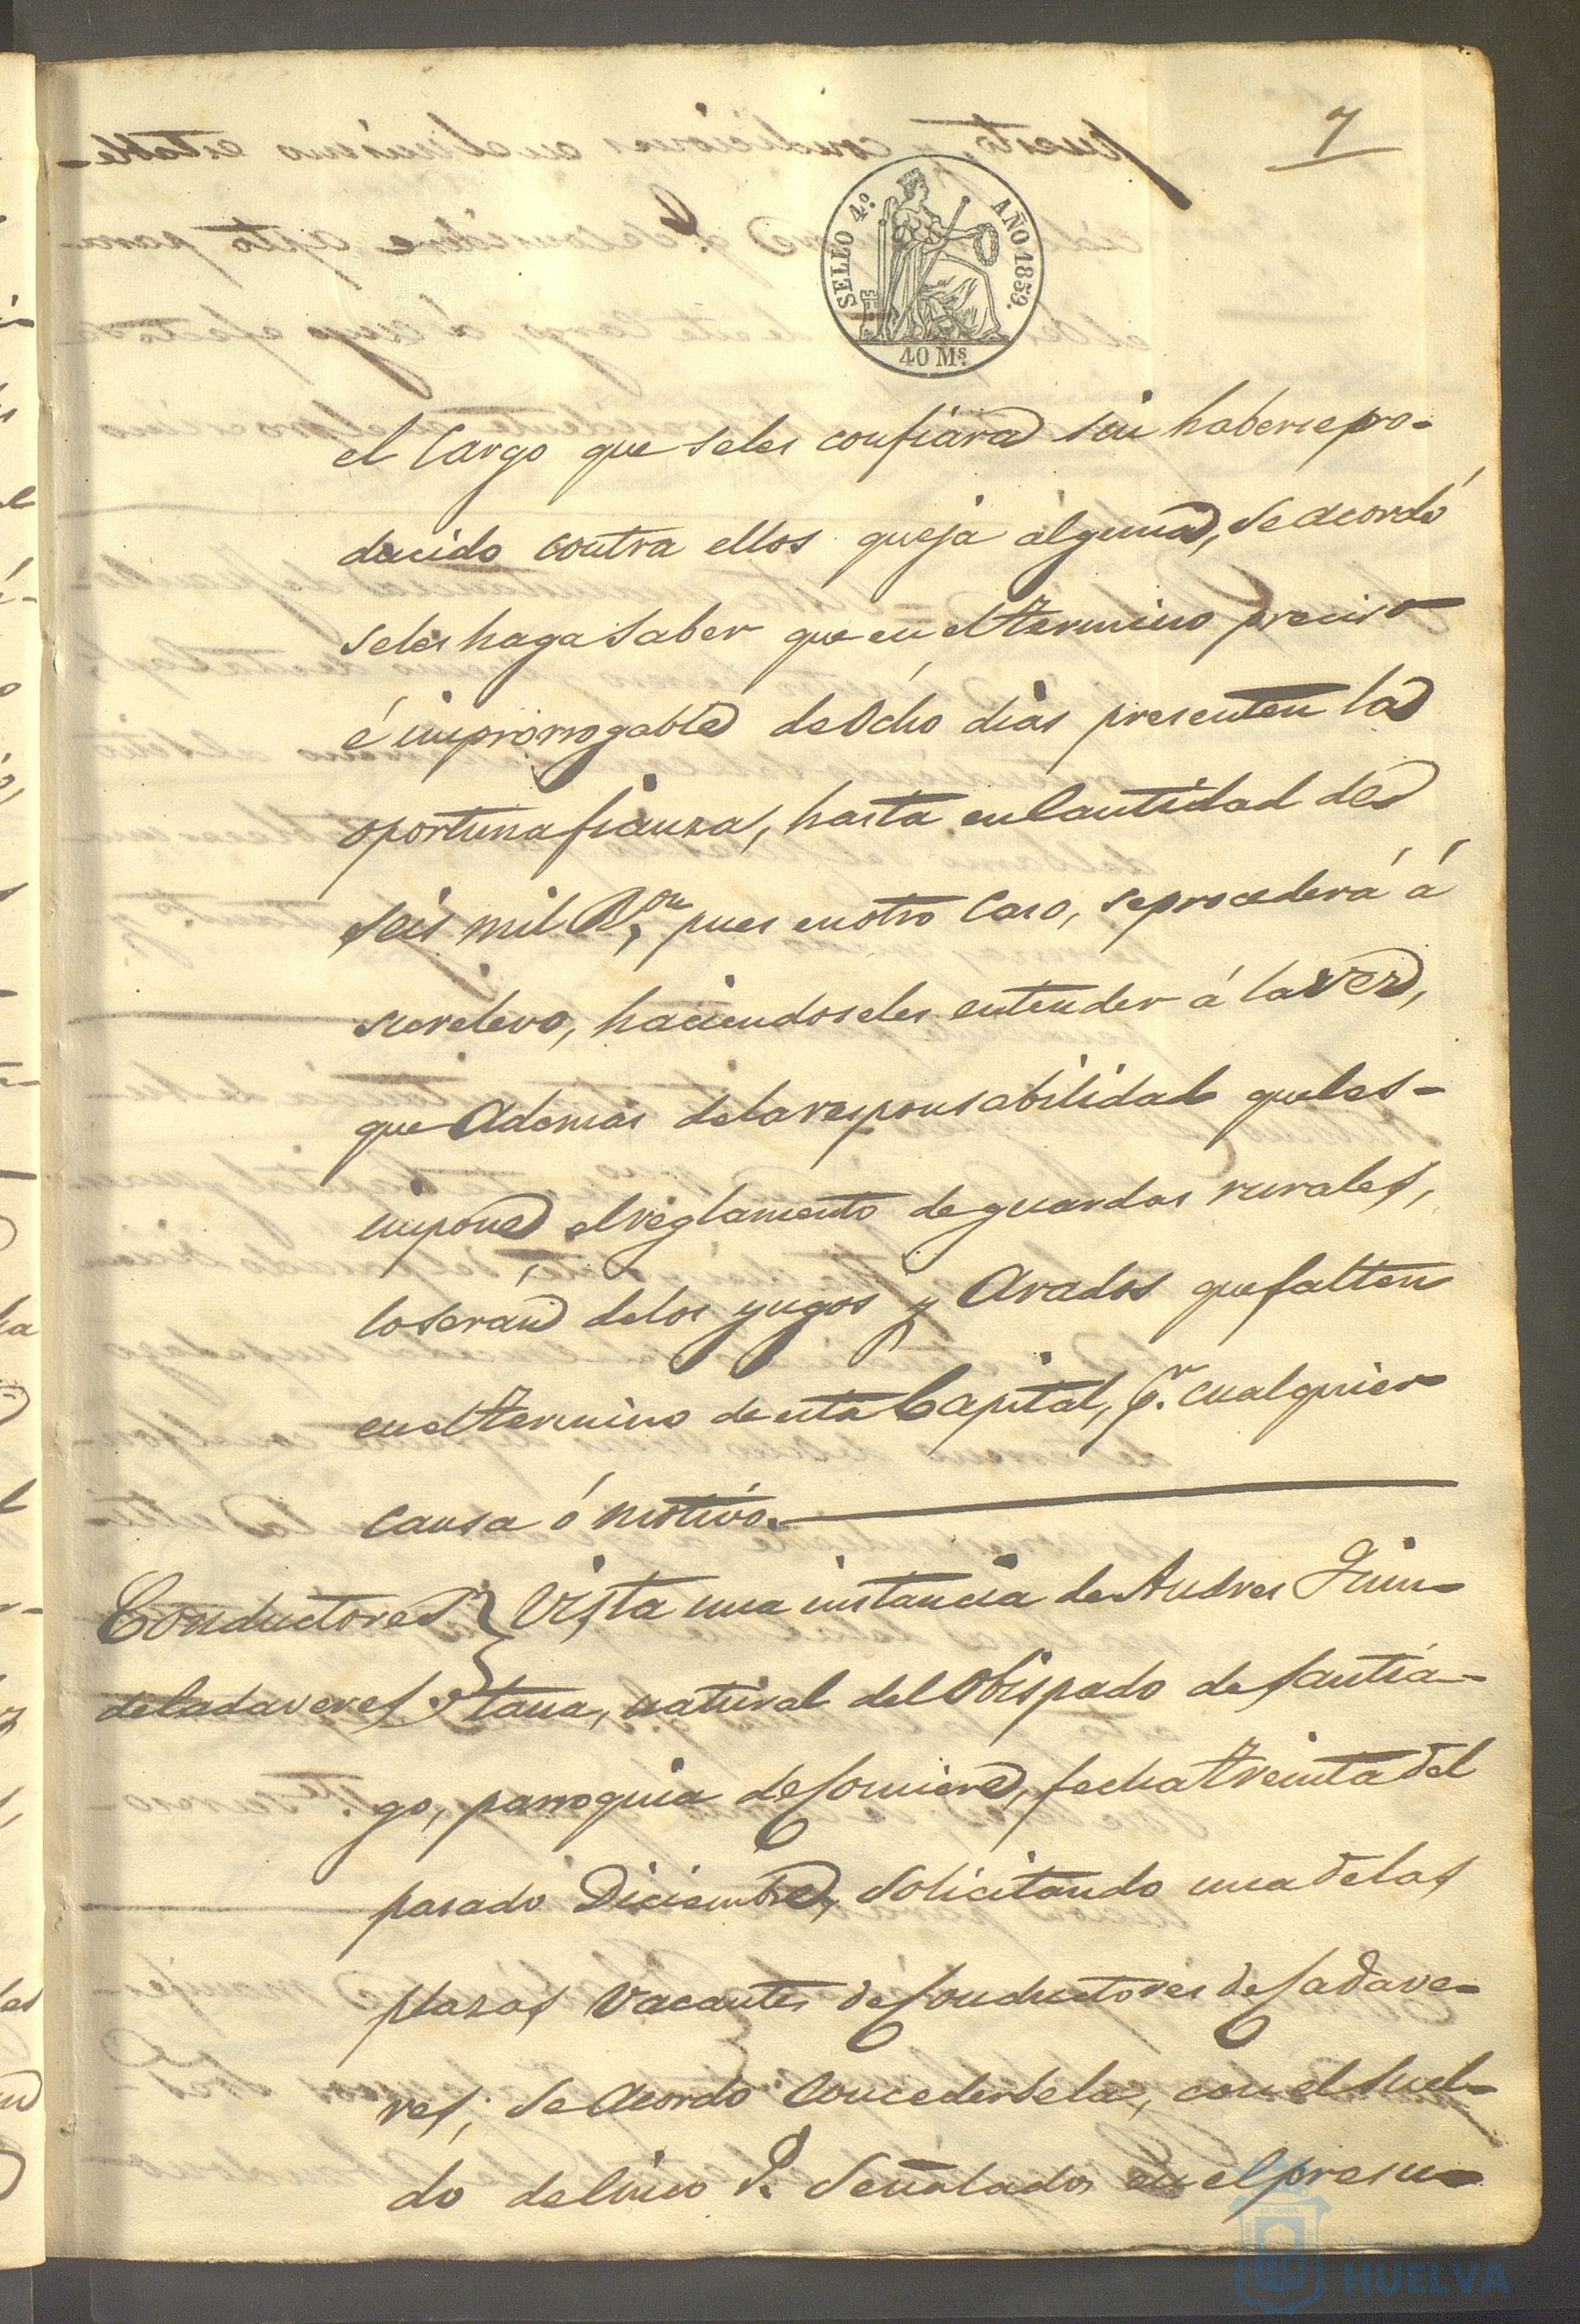 7
SELLO 4º. AÑO 1859.
40 Ms.
el Cargo que se les confiára sin haberse pro-
ducido contra ellos queja alguna, se acordó
se les haga saber que en el termino preciso
é improrrogable de Ocho dias presenten la
oportuna fianza, hasta en Cantidad de
seis mil Ron, pues en otro Caso, se procederá á
su relevo, haciendoseles entender á la vez,
que Ademas de la responsabilidad que les-
impone el reglamento de guardas rurales,
lo serán de los yugos y Arados que falten
en el termino de esta Capital, pr. cualquier
causa ó motivo.
Conductores
de Cadaveres.
Vista una instancia de Andres Quin-
tana, natural del Obispado de Santia-
go, parroquia de , fecha treinta del
pasado Diciembre, solicitando una de las
plazas Vacantes de Conductores de Cadave-
res; se Acordó Concedersela, con el suel-
do de Cinco Rs. Señalados en el presu-
HUELVA